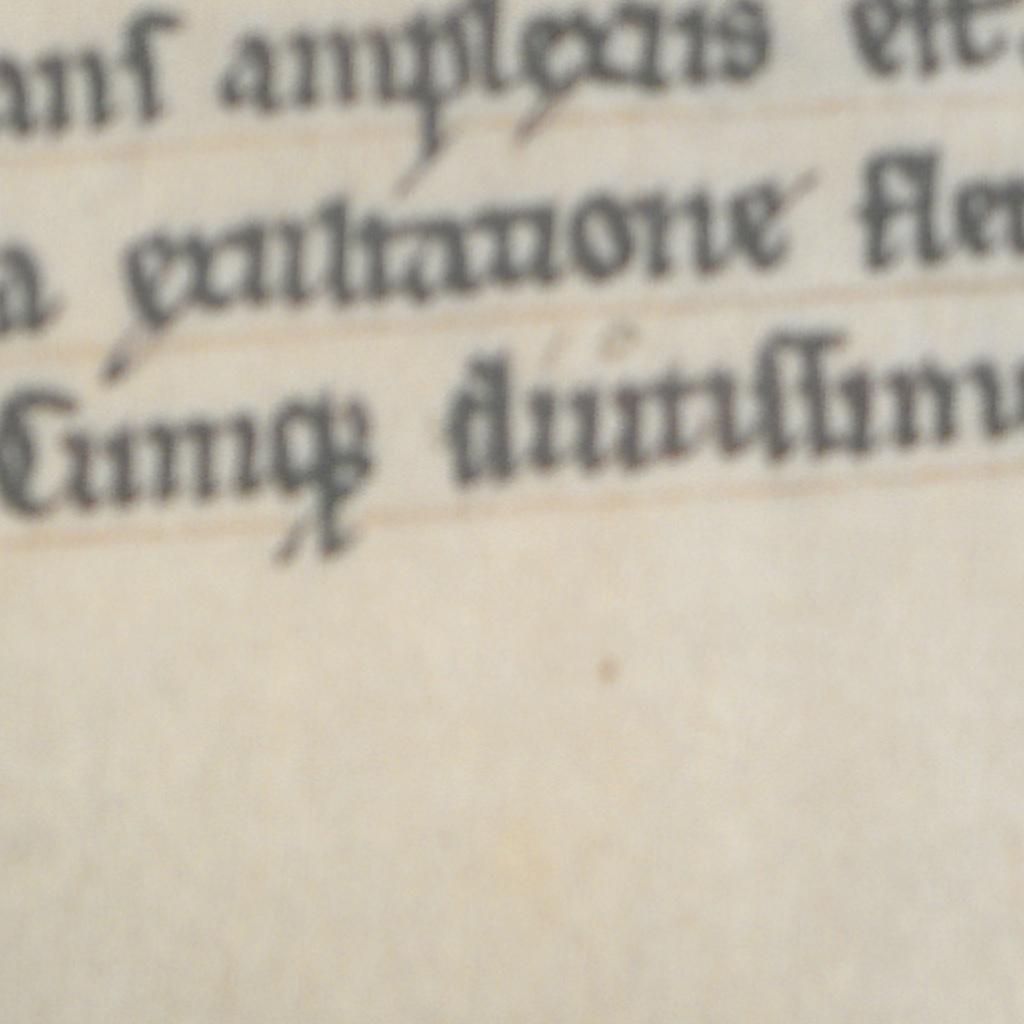 anſ amplexus eſt
a exultatione fleu
Cumqꝫ diutiſſimu